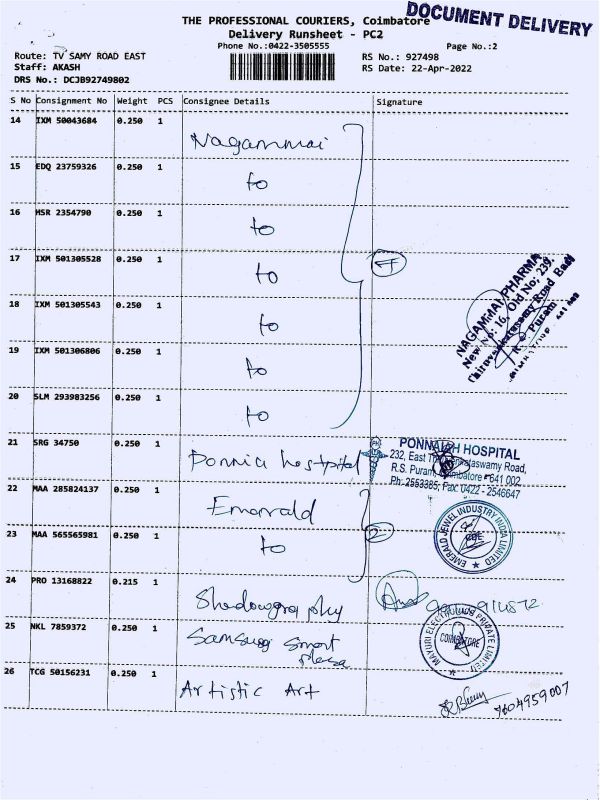 DOCUMENT DELIVERY
THE PROFESSIONAL COURIERS, Coimbatore
Delivery Runsheet - PC2
Phone No.:0422-3505555
Page No.:2
Route: TV SAMY ROAD EAST
RS No.: 927498
Staff: AKASH
RS Date: 22-Apr-2022
DRS No.: DCJB92749802
S No Consignment No Weight PCS Consignee Details Signature
14 IXM 50043684 0.250 1 Nagammai
15 EDQ 23759326 0.250 1 to
16 HSR 2354790 0.250 1 to
17 IXM 501305528 0.250 1 to 7
18 IXM 501305543 0.250 1 to
19 IXM 501306806 0.250 1 to
20 SLM 293983256 0.250 1 to
NAGAMMAI PHARMA
New No: 16, Old No: 239,
Thiruvenkatasamy Road East
R.S. Puram
21 SRG 34750 0.250 1 Ponnia hostpital
PONNAIAH HOSPITAL
232, East Venkataswamy Road,
R.S. Puram, Coimbatore - 641 002
Ph: 2553385, Fax: 0422 - 2546647
22 MAA 285824137 0.250 1 Emerald
23 MAA 565565981 0.250 1 to 2
EMERALD JEWEL INDUSTRY INDIA LIMITED
CBE
24 PRO 13168822 0.215 1 Shadowgraphy
25 NKL 7859372 0.250 1 Samsung Smart
plaza
MAYURI PRIVATE LIMITED
COIMBATORE
26 TCG 50156231 0.250 1 Artistic Art
7604959007